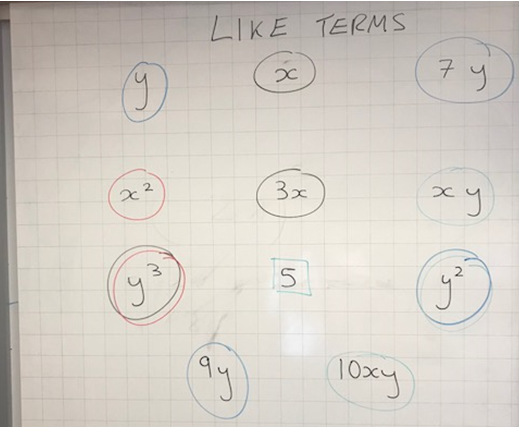 LIKE TERMS
y x 7y
x² 3x xy
y³ 5 y²
9y 10xy